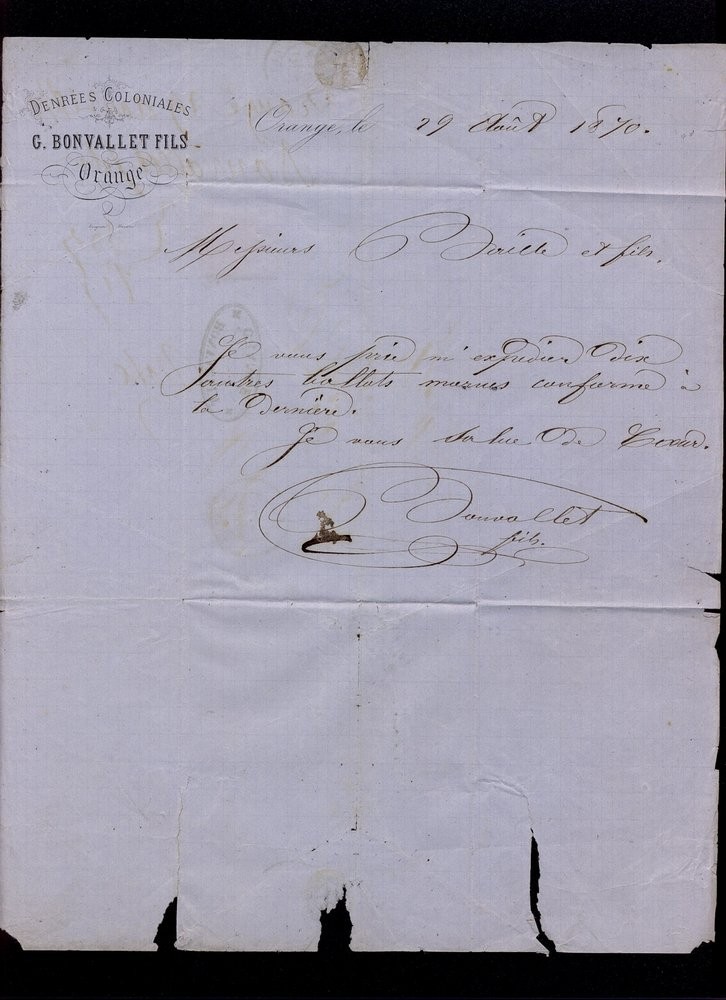 DENRÉES COLONIALES
G. BONVALLET FILS
Orange
Orange, le 29 Août 1870.
Messieurs et fils,
Je vous prie m'expedier dix
autres ballots morues conforme à
la Derniere.
Je vous Salue De Cœur.
Bonvallet
fils.